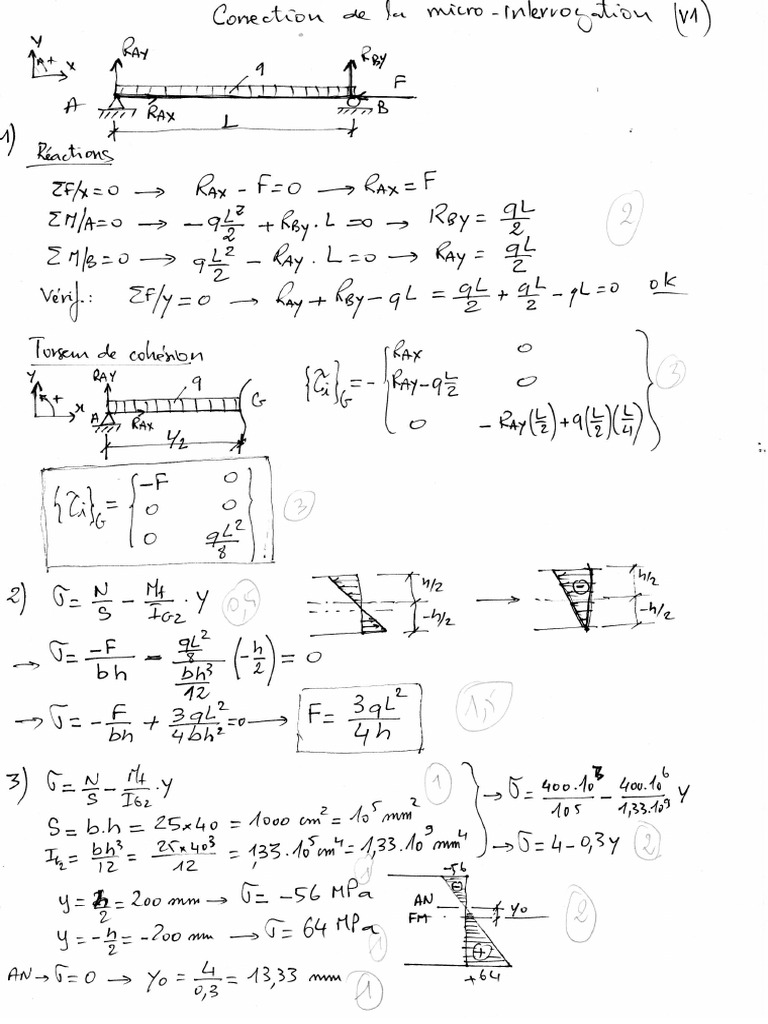 Correction de la micro-interrogation (V1)
Y
+
x
RAY
q
RBY
F
A
RAX
B
L
1) Réactions
ΣF/x=0 → RAX - F=0 → RAX=F
ΣM/A=0 → -qL²/2 + RBY.L=0 → RBY = qL/2
2
ΣM/B=0 → qL²/2 - RAY.L=0 → RAY = qL/2
Vérif.: ΣF/y=0 → RAY + RBY - qL = qL/2 + qL/2 - qL=0 ok
Torseur de cohésion
Y
+
x
RAY
q
G
A
RAX
L/2
{τi}G = - { RAX 0
RAY-qL/2 0
0 -RAY(L/2)+q(L/2)(L/4) }
3
{τi}G = { -F 0
0 0
0 qL²/8 }
3
2) σ = N/S - Mf/IGZ . Y
0,5
h/2
-h/2
→
⊖
h/2
-h/2
→ σ = -F/bh - (qL²/8)/(bh³/12) (-h/2) = 0
→ σ = -F/bh + 3qL²/4bh² =0 → F = 3qL²/4h
1,5
3) σ = N/S - Mf/IGZ . Y
1
S = b.h = 25×40 = 1000 cm² = 10⁵ mm²
IGZ = bh³/12 = 25×40³/12 = 1,33.10⁵ cm⁴ = 1,33.10⁹ mm⁴
1
→ σ = 400.10³/10⁵ - 400.10⁶/1,33.10⁹ Y
→ σ = 4 - 0,3y
2
y = h/2 = 200 mm → σ = -56 MPa
y = -h/2 = -200 mm → σ = 64 MPa
1
-56
⊖
AN
FM
y0
⊕
+64
2
AN → σ=0 → y0 = 4/0,3 = 13,33 mm
1